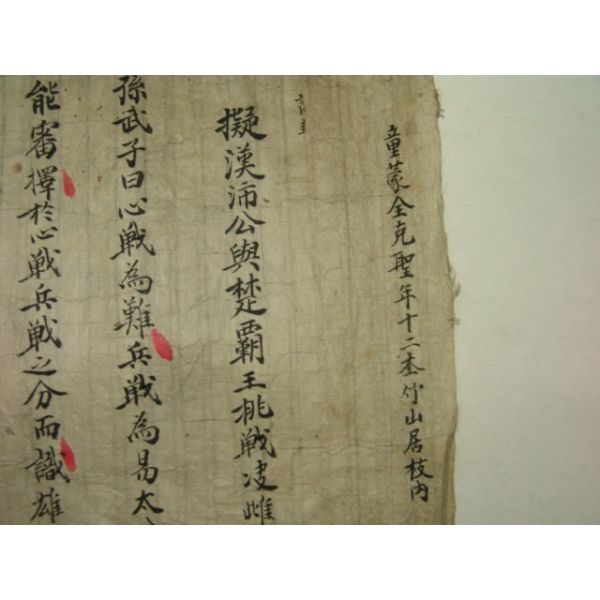 童蒙全克聖年十二本竹山居枝內
擬漢沛公與楚覇王挑戦决雌
孫武子曰心戦為難兵戦為易太
能審擇於心戦兵戦之分而識雄